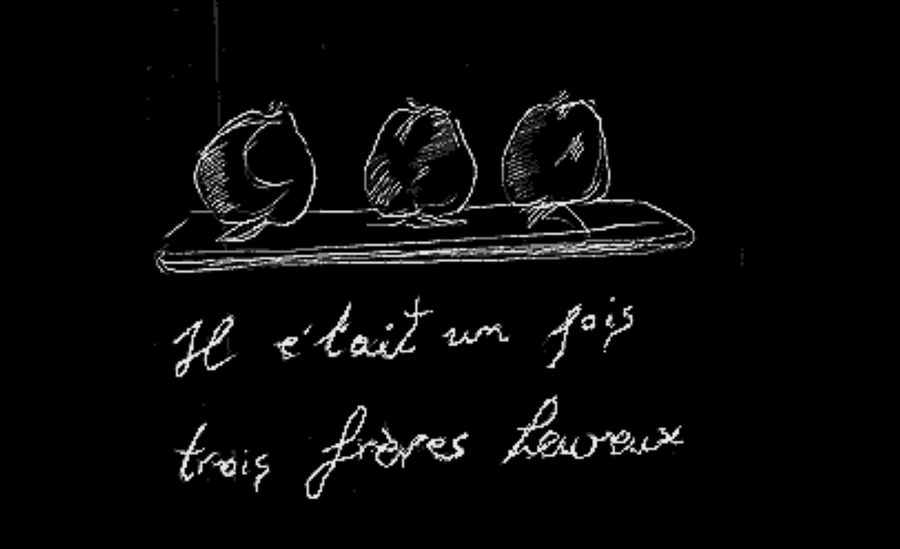 Il était un fois
trois frères heureux